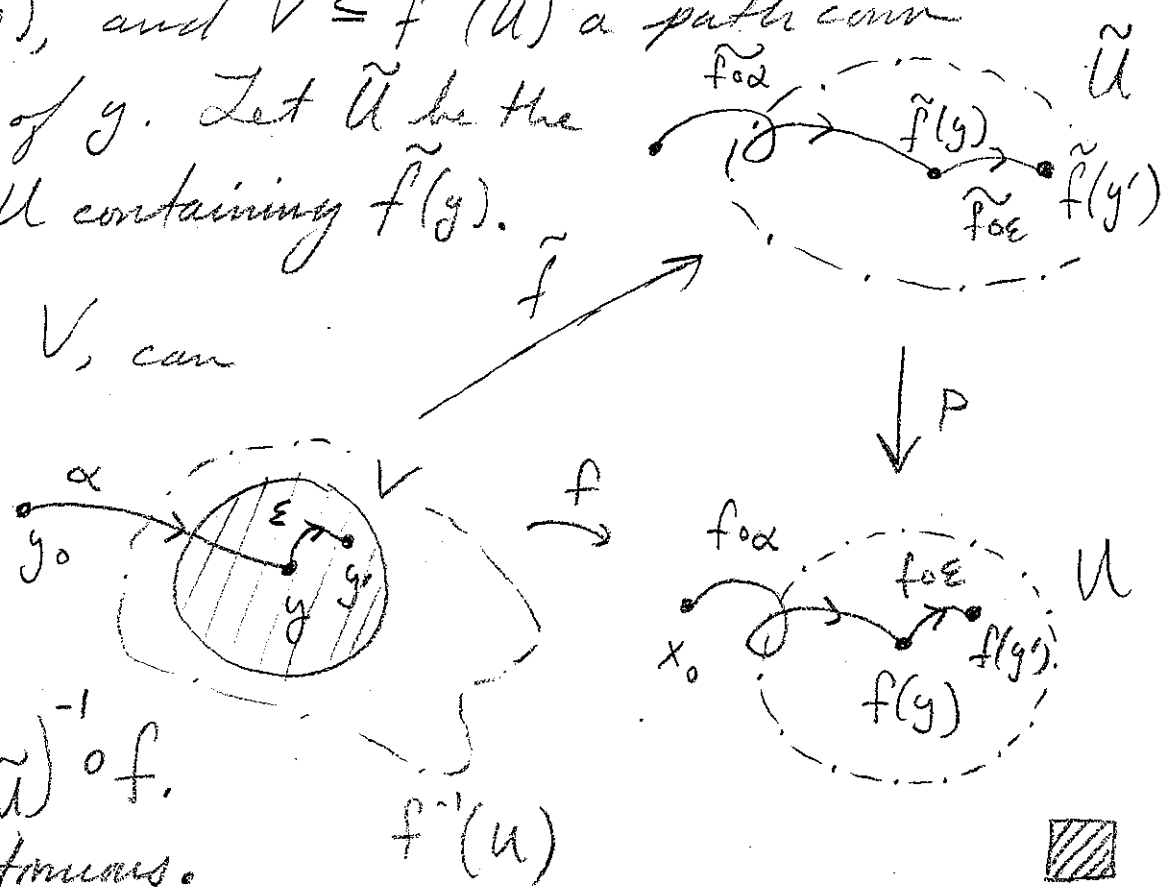 ), and V ⊆ f⁻¹(U) a path conn
of y. Let Ũ be the
U containing f̃(y).
V, can
Ũ)⁻¹ ∘ f.
tinuous.
f̃∘α
Ũ
f̃(y)
f̃∘ε
f̃(y')
f̃
P
α
y₀
V
ε
y
y'
f
f⁻¹(U)
f∘α
f∘ε
U
x₀
f(y)
f(y')